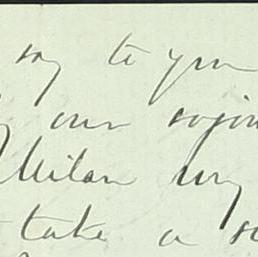 say to you
our sojou
Milan my
take a s